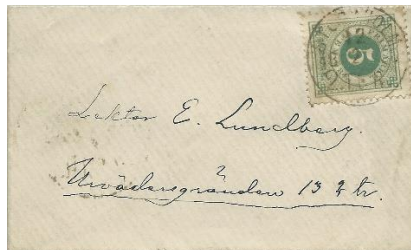 5
Lektor E. Lundberg.
Urvädersgränden 13 2 tr.